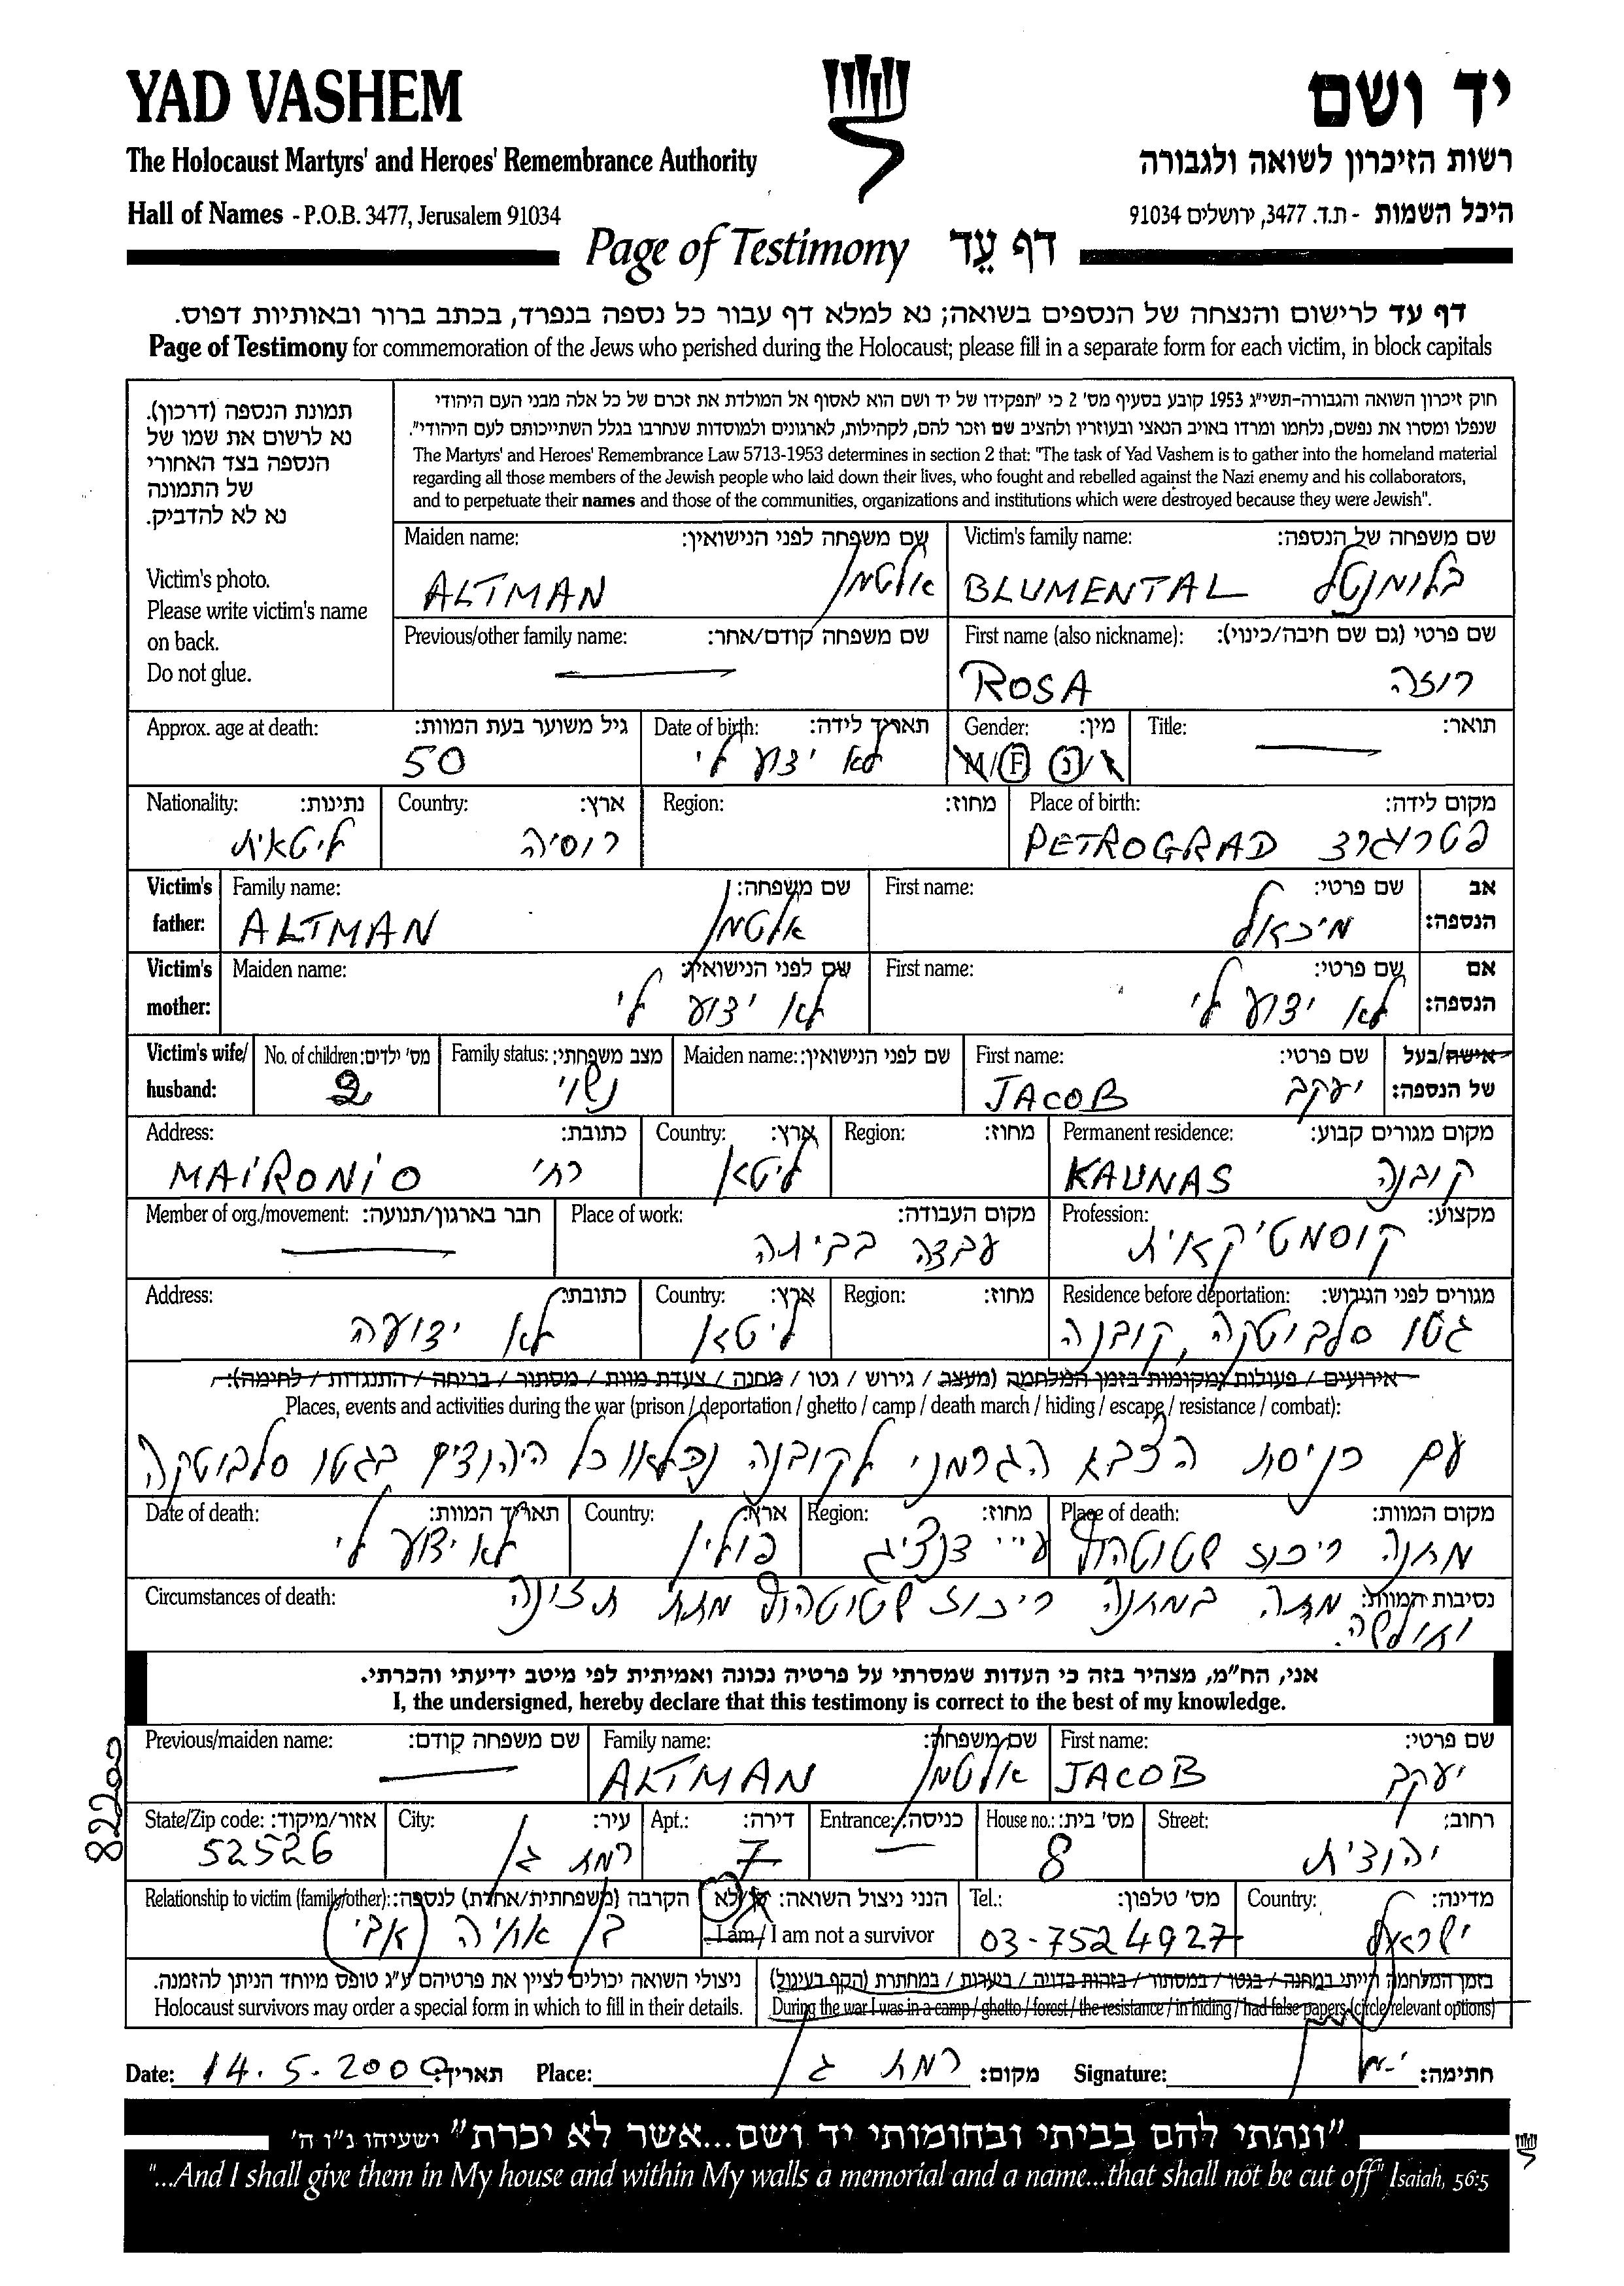 YAD VASHEM
יד ושם
The Holocaust Martyrs' and Heroes' Remembrance Authority
רשות הזיכרון לשואה ולגבורה
Hall of Names - P.O.B. 3477, Jerusalem 91034
היכל השמות - ת.ד. 3477, ירושלים 91034
Page of Testimony דף עֵד
דף עד לרישום והנצחה של הנספים בשואה; נא למלא דף עבור כל נספה בנפרד, בכתב ברור ובאותיות דפוס.
Page of Testimony for commemoration of the Jews who perished during the Holocaust; please fill in a separate form for each victim, in block capitals
תמונת הנספה (דרכון).
נא לרשום את שמו של
הנספה בצד האחורי
של התמונה
נא לא להדביק.
Victim's photo.
Please write victim's name
on back.
Do not glue.
חוק זיכרון השואה והגבורה-תשי"ג 1953 קובע בסעיף מס' 2 כי "תפקידו של יד ושם הוא לאסוף אל המולדת את זכרם של כל אלה מבני העם היהודי
שנפלו ומסרו את נפשם, נלחמו ומרדו באויב הנאצי ובעוזריו ולהציב שם וזכר להם, לקהילות, לארגונים ולמוסדות שנחרבו בגלל השתייכותם לעם היהודי".
The Martyrs' and Heroes' Remembrance Law 5713-1953 determines in section 2 that: "The task of Yad Vashem is to gather into the homeland material
regarding all those members of the Jewish people who laid down their lives, who fought and rebelled against the Nazi enemy and his collaborators,
and to perpetuate their names and those of the communities, organizations and institutions which were destroyed because they were Jewish".
Victim's family name: שם משפחה של הנספה:
BLUMENTAL בלומנטל
Maiden name: שם משפחה לפני הנישואין:
ALTMAN אלטמן
First name (also nickname): שם פרטי (גם שם חיבה/כינוי):
ROSA רוזה
Previous/other family name: שם משפחה קודם/אחר:
Title: תואר:
Gender: מין:
M/F נ/ז
Date of birth: תאריך לידה:
לא ידוע לי
Approx. age at death: גיל משוער בעת המוות:
50
Place of birth: מקום לידה:
PETROGRAD פטרוגרד
Region: מחוז:
Country: ארץ:
רוסיה
Nationality: נתינות:
ליטאית
Victim's father: אב הנספה:
First name: שם פרטי:
מיכאל
Family name: שם משפחה:
ALTMAN אלטמן
Victim's mother: אם הנספה:
First name: שם פרטי:
לא ידוע לי
Maiden name: שם לפני הנישואין:
לא ידוע לי
Victim's wife/ husband: אישה/בעל של הנספה:
First name: שם פרטי:
JACOB יעקב
Maiden name: שם לפני הנישואין:
Family status: מצב משפחתי:
נשוי
No. of children: מס' ילדים:
2
Permanent residence: מקום מגורים קבוע:
KAUNAS קובנה
Region: מחוז:
Country: ארץ:
ליטא
Address: כתובת:
MAIRONIO רח'
Profession: מקצוע:
קוסמטיקאית
Place of work: מקום העבודה:
עבדה בביתה
Member of org./movement: חבר בארגון/תנועה:
Residence before deportation: מגורים לפני הגירוש:
גטו סלבוטקה, קובנה
Region: מחוז:
Country: ארץ:
ליטא
Address: כתובת:
לא ידועה
אירועים / פעולות /מקומות בזמן המלחמה (מעצב / גירוש / גטו / מחנה / צעדת מוות / מסתור / בריחה / התנגדות / לחימה):
Places, events and activities during the war (prison / deportation / ghetto / camp / death march / hiding / escape / resistance / combat):
עם כניסת הצבא הגרמני לקובנה נכלאו כל היהודים בגטו סלבוטקה
Place of death: מקום המוות:
מחנה ריכוז שטוטהוף
Region: מחוז:
ע"י דנציג
Country: ארץ:
פולין
Date of death: תאריך המוות:
לא ידוע לי
Circumstances of death: נסיבות המוות:
מתה במחנה ריכוז שטוטהוף מתת תזונה
וחולשה.
אני, הח"מ, מצהיר בזה כי העדות שמסרתי על פרטיה נכונה ואמיתית לפי מיטב ידיעתי והכרתי.
I, the undersigned, hereby declare that this testimony is correct to the best of my knowledge.
First name: שם פרטי:
JACOB יעקב
Family name: שם משפחה:
ALTMAN אלטמן
Previous/maiden name: שם משפחה קודם:
82202
Street: רחוב:
יהודית
House no.: מס' בית:
8
Entrance: כניסה:
Apt.: דירה:
7
City: עיר:
רמת גן
State/Zip code: אזור/מיקוד:
52526
Country: מדינה:
ישראל
Tel.: מס' טלפון:
03-7524927
הנני ניצול השואה: לא
I am / I am not a survivor
Relationship to victim (family/other): הקרבה (משפחתית/אחרת) לנספה:
בן אחיה (אבי)
בזמן המלחמה הייתי במחנה / בגטו / במסתור / בזהות בדויה / ביערות / במחתרת (הקף בעיגול)
During the war I was in a camp / ghetto / forest / the resistance / in hiding / had false papers (circle relevant options)
ניצולי השואה יכולים לציין את פרטיהם ע"ג טופס מיוחד הניתן להזמנה.
Holocaust survivors may order a special form in which to fill in their details.
Date: 14.5.2000 תאריך: Place: רמת גן מקום: Signature: חתימה:
"ונתתי להם בביתי ובחומותי יד ושם...אשר לא יכרת" ישעיהו נ"ו ה'
"...And I shall give them in My house and within My walls a memorial and a name...that shall not be cut off" Isaiah, 56:5